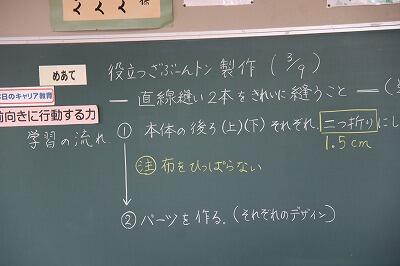 役立つざぶーんトン 製作 (3/9)
めあて
― 直線縫い2本をきれいに縫うこと ―
本日のキャリア教育
前向きに行動する力
学習の流れ
① 本体の後ろ(上)(下)それぞれ、二つ折りにし
1.5cm
注 布をひっぱらない
② パーツを作る。(それぞれのデザイン)